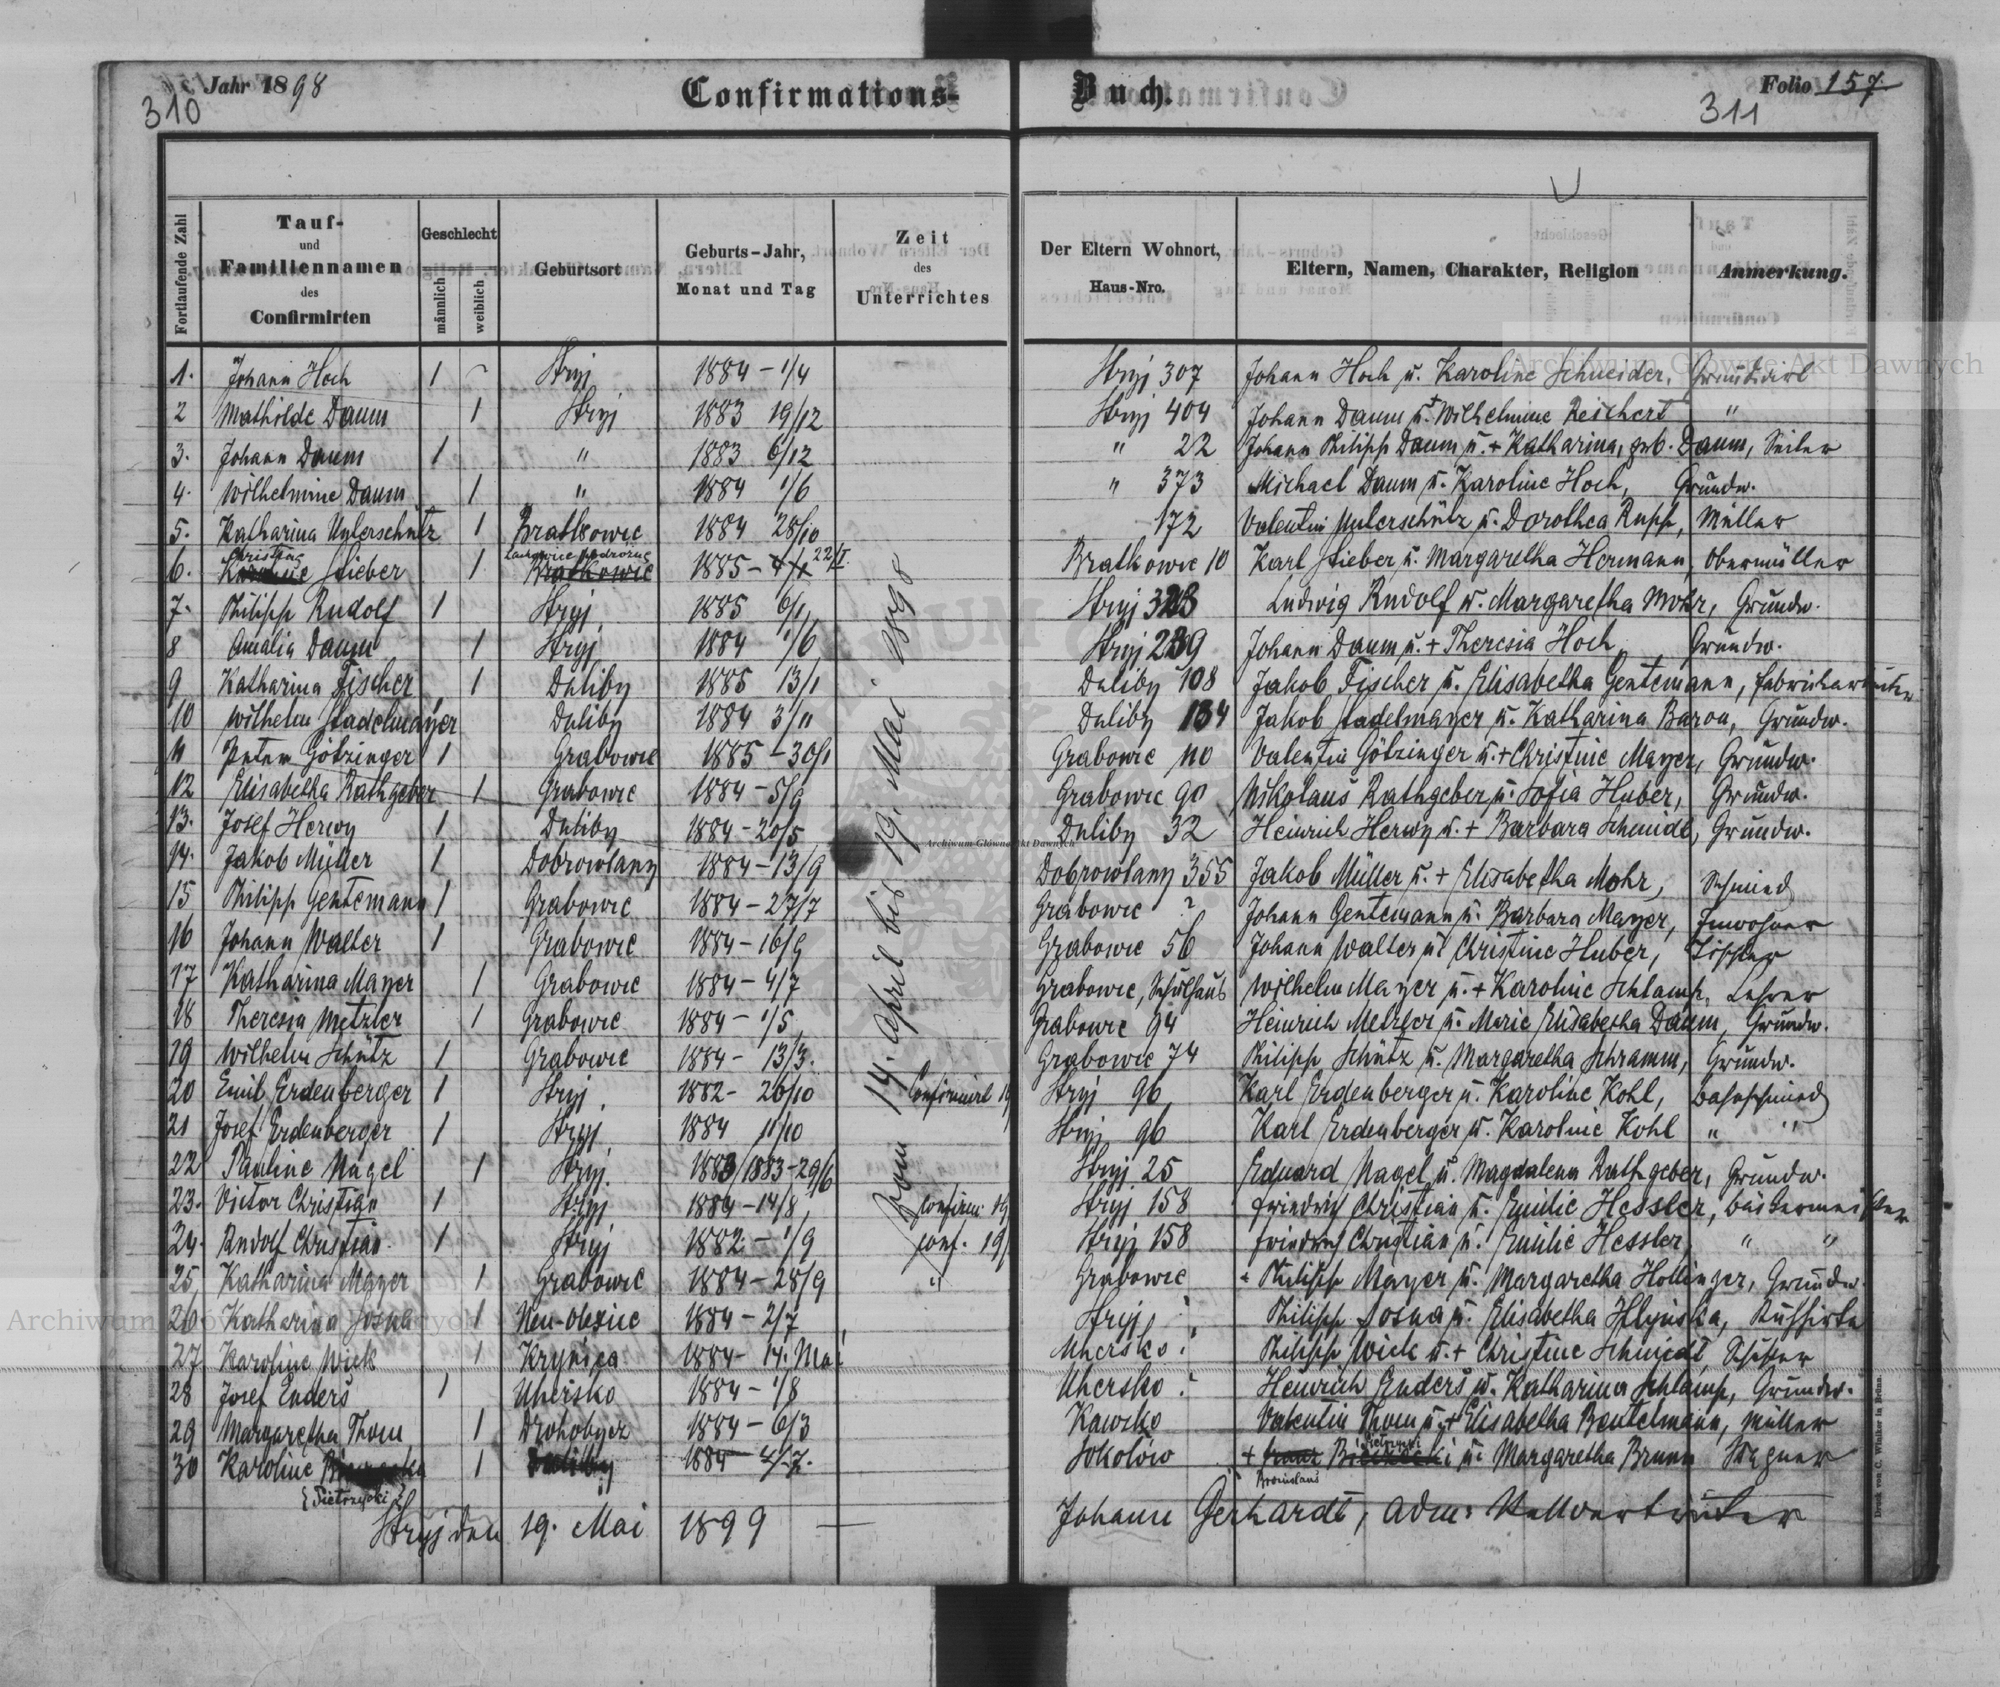 Jahr 1898 Confirmations- Buch. Folio 157.
310 311
Fortlaufende Zahl
Tauf- und Familiennamen des Confirmirten
Geschlecht
männlich weiblich
Geburtsort
Geburts-Jahr, Monat und Tag
Zeit des Unterrichtes
Der Eltern Wohnort, Haus-Nro.
Eltern, Namen, Charakter, Religion
Anmerkung.
1. Johann Hoch 1 - Stryj 1884 - 1/4 Stryj 307 Johann Hoch u. Karoline Schneider,
2 Mathilde Daum 1 Stryj 1883 19/12 Stryj 404 Johann Daum u. + Wilhelmine Reichert "
3. Johann Daum 1 " 1883 6/12 " 22 Johann Philipp Daum u. + Katharina, geb. Daum, Seiler
4. Wilhelmine Daum 1 " 1884 1/6 " 373 Michael Daum u. Karoline Hoch, Grundw.
5. Katharina Unterschütz 1 Bratkowce 1884 28/10 172 Valentin Unterschütz u. Dorothea Rupp, Müller
6. Christine Stieber 1 Bratkowic 1885 - 22/I. Bratkowic 10 Karl Stieber u. Margaretha Hermann, Obermüller
7. Philipp Rudolf 1 Stryj 1885 6/1 Stryj 323 Ludwig Rudolf u. Margaretha Mohr, Grundw.
8 Amalia Daum 1 Stryj 1884 1/6 Stryj 239 Johann Daum u. + Theresia Hoch, Grundw.
9 Katharina Fischer 1 Duliby 1885 13/1 Duliby 108 Jakob Fischer u. Elisabetha Gentemann, Fabriksarbeiter
10 Wilhelm Stadelmayer Duliby 1884 3/11 Duliby 134 Jakob Stadelmayer u. Katharina Baron, Grundw.
11 Peter Götzinger 1 Grabowie 1885 - 30/1 Grabowie 110 Valentin Götzinger u. + Christine Mayer, Grundw.
12 Elisabetha Rathgeber 1 Grabowie 1884 - 5/9 Grabowie 90 Nikolaus Rathgeber u. Sofia Huber, Grundw.
13. Josef Herwy 1 Duliby 1884 - 20/5 Duliby 32 Heinrich Herwy u. + Barbara Schmidt, Grundw.
14. Jakob Müller 1 Dobrowlany 1884 - 13/9 Dobrowlany 355 Jakob Müller u. + Elisabetha Mohr, Schmied
15 Philipp Gentemann 1 Grabowie 1884 - 27/7 Grabowie ? Johann Gentemann u. Barbara Mayer, Inwohner
16 Johann Walter 1 Grabowie 1884 - 16/9 Grabowie 56 Johann Walter u. Christine Huber, Tischler
17 Katharina Mayer 1 Grabowie 1884 - 4/7 Grabowie, Schulhaus Wilhelm Mayer u. + Karoline Schlamp, Lehrer
18 Theresia Metzler 1 Grabowie 1884 - 1/5 Grabowie 94 Heinrich Metzler u. Marie Elisabetha Daum, Grundw.
19 Wilhelm Schütz 1 Grabowie 1884 - 13/3. Grabowie 74 Philipp Schütz u. Margaretha Schramm, Grundw.
20 Emil Erdenberger 1 Stryj 1882 - 26/10 Confirmirt 19 Stryj 96 Karl Erdenberger u. Karoline Kohl, Bahnschmied
21 Josef Erdenberger 1 Stryj 1884 11/10 Stryj 96 Karl Erdenberger u. Karoline Kohl " "
22 Pauline Nagel 1 Stryj 1883/1883 - 29/6 Stryj 25 Eduard Nagel u. Magdalena Rathgeber, Grundw.
23. Victor Christian 1 Stryj 1884 - 14/8 Confirm. 19 Stryj 158 Friedrich Christian u. Emilie Hessler, Bäckermeister
24. Rudolf Christian 1 Stryj 1882 - 1/9 Conf. 19/ Stryj 158 Friedrich Christian u. Emilie Hessler, " "
25, Katharina Mayer 1 Grabowie 1884 - 28/9 " Grabowie + Philipp Mayer u. Margaretha Hollinger, Grundw.
26 Katharina Sosna 1 Neu-Olexice 1884 - 2/7 Stryj Philipp Sosna u. Elisabetha
27 Karoline Wick 1 Krynica 1884 - 14. Mai Uhersko Philipp Wick u. + Christine Schmidt
28 Josef Enders 1 Uhersko 1884 - 1/8 Uhersko Heinrich Enders u. Katharina Schlamp, Grundw.
29 Margaretha Thom 1 Drohobycz 1884 - 6/3 Kawcko Valentin Thom u. + Elisabetha Beutelmann, Müller
30 Karoline 1 Duliby 1884 Sokolów + u. Margaretha Brunn Wagner
{Pietrzycki} Bronislaus
vom 14. April bis 19. Mai 1898
Stryj den 19. Mai 1899 — Johann Gerhardt, Adm: Stellvertreter
Druck von C. Winiker in Brünn.
Archiwum Główne Akt Dawnych
Archiwum Główne Akt Dawnych
Archiwum Główne Akt Dawnych